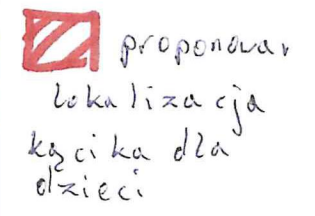 proponowa.
lokalizacja
kącika dla
dzieci